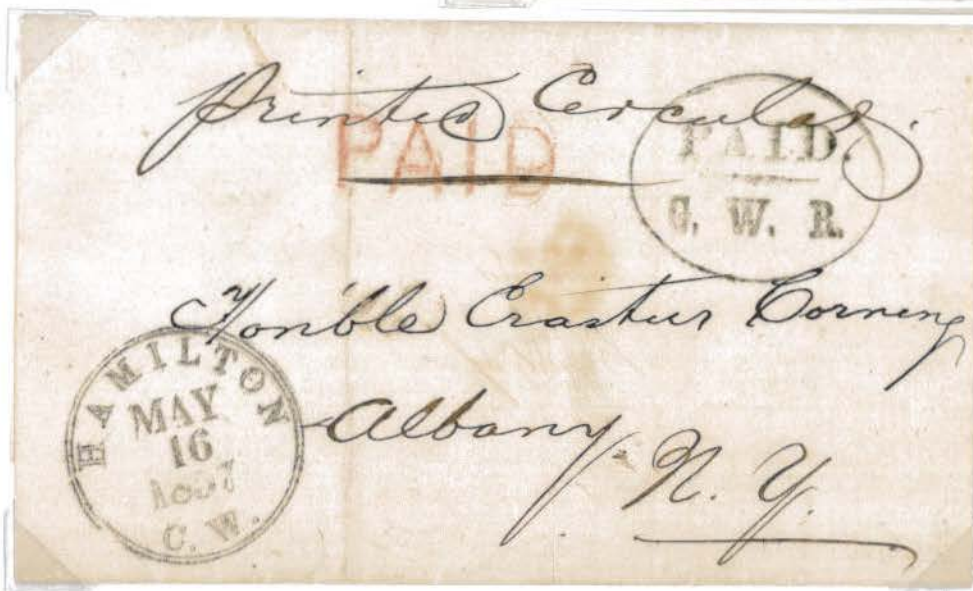 Printed Circular.
PAID
PAID.
G. W. R.
Hon'ble Erastus Corning
Albany
N. Y.
HAMILTON
MAY
16
1857
C. W.